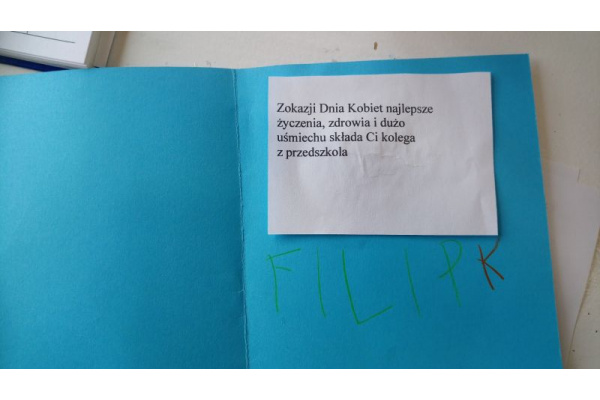 Zokazji Dnia Kobiet najlepsze
życzenia, zdrowia i dużo
uśmiechu składa Ci kolega
z przedszkola
FILIP K